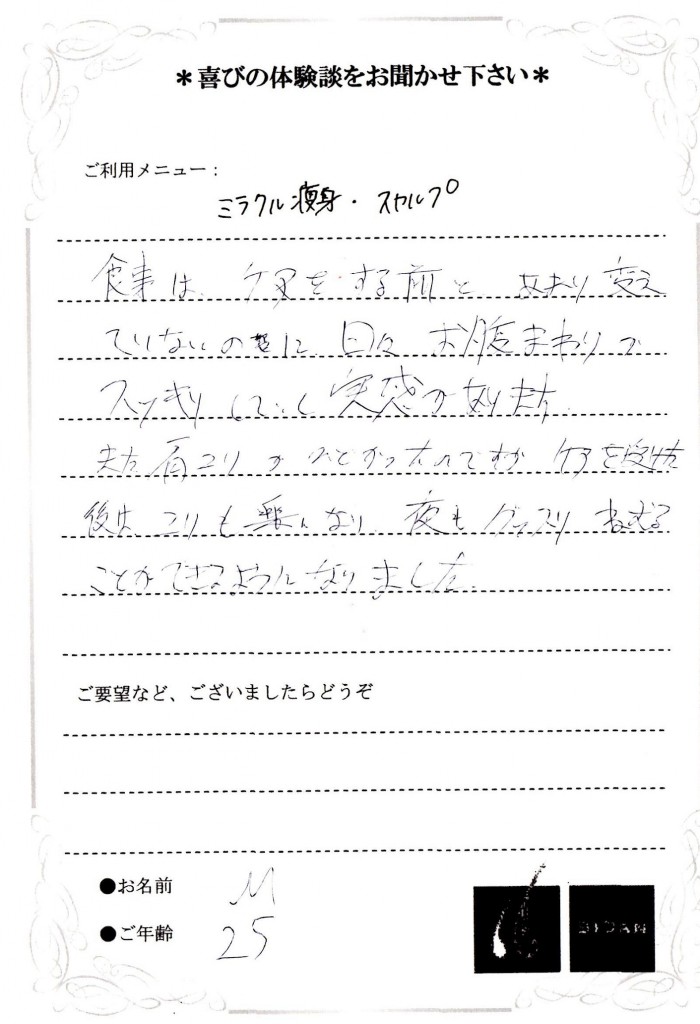 ＊喜びの体験談をお聞かせ下さい＊
ご利用メニュー：
ミラクル痩身・スカルプ
食事は、ケアをする前とあまり変え
ていないのに、日々お腹まわりが
スッキリしていく実感があります。
また肩コリがひどかったのですがケアを受けた
後は、コリも楽になり、夜もグッスリねむる
ことができるようになりました。
ご要望など、ございましたらどうぞ
●お名前 M
●ご年齢 25
BIJAN